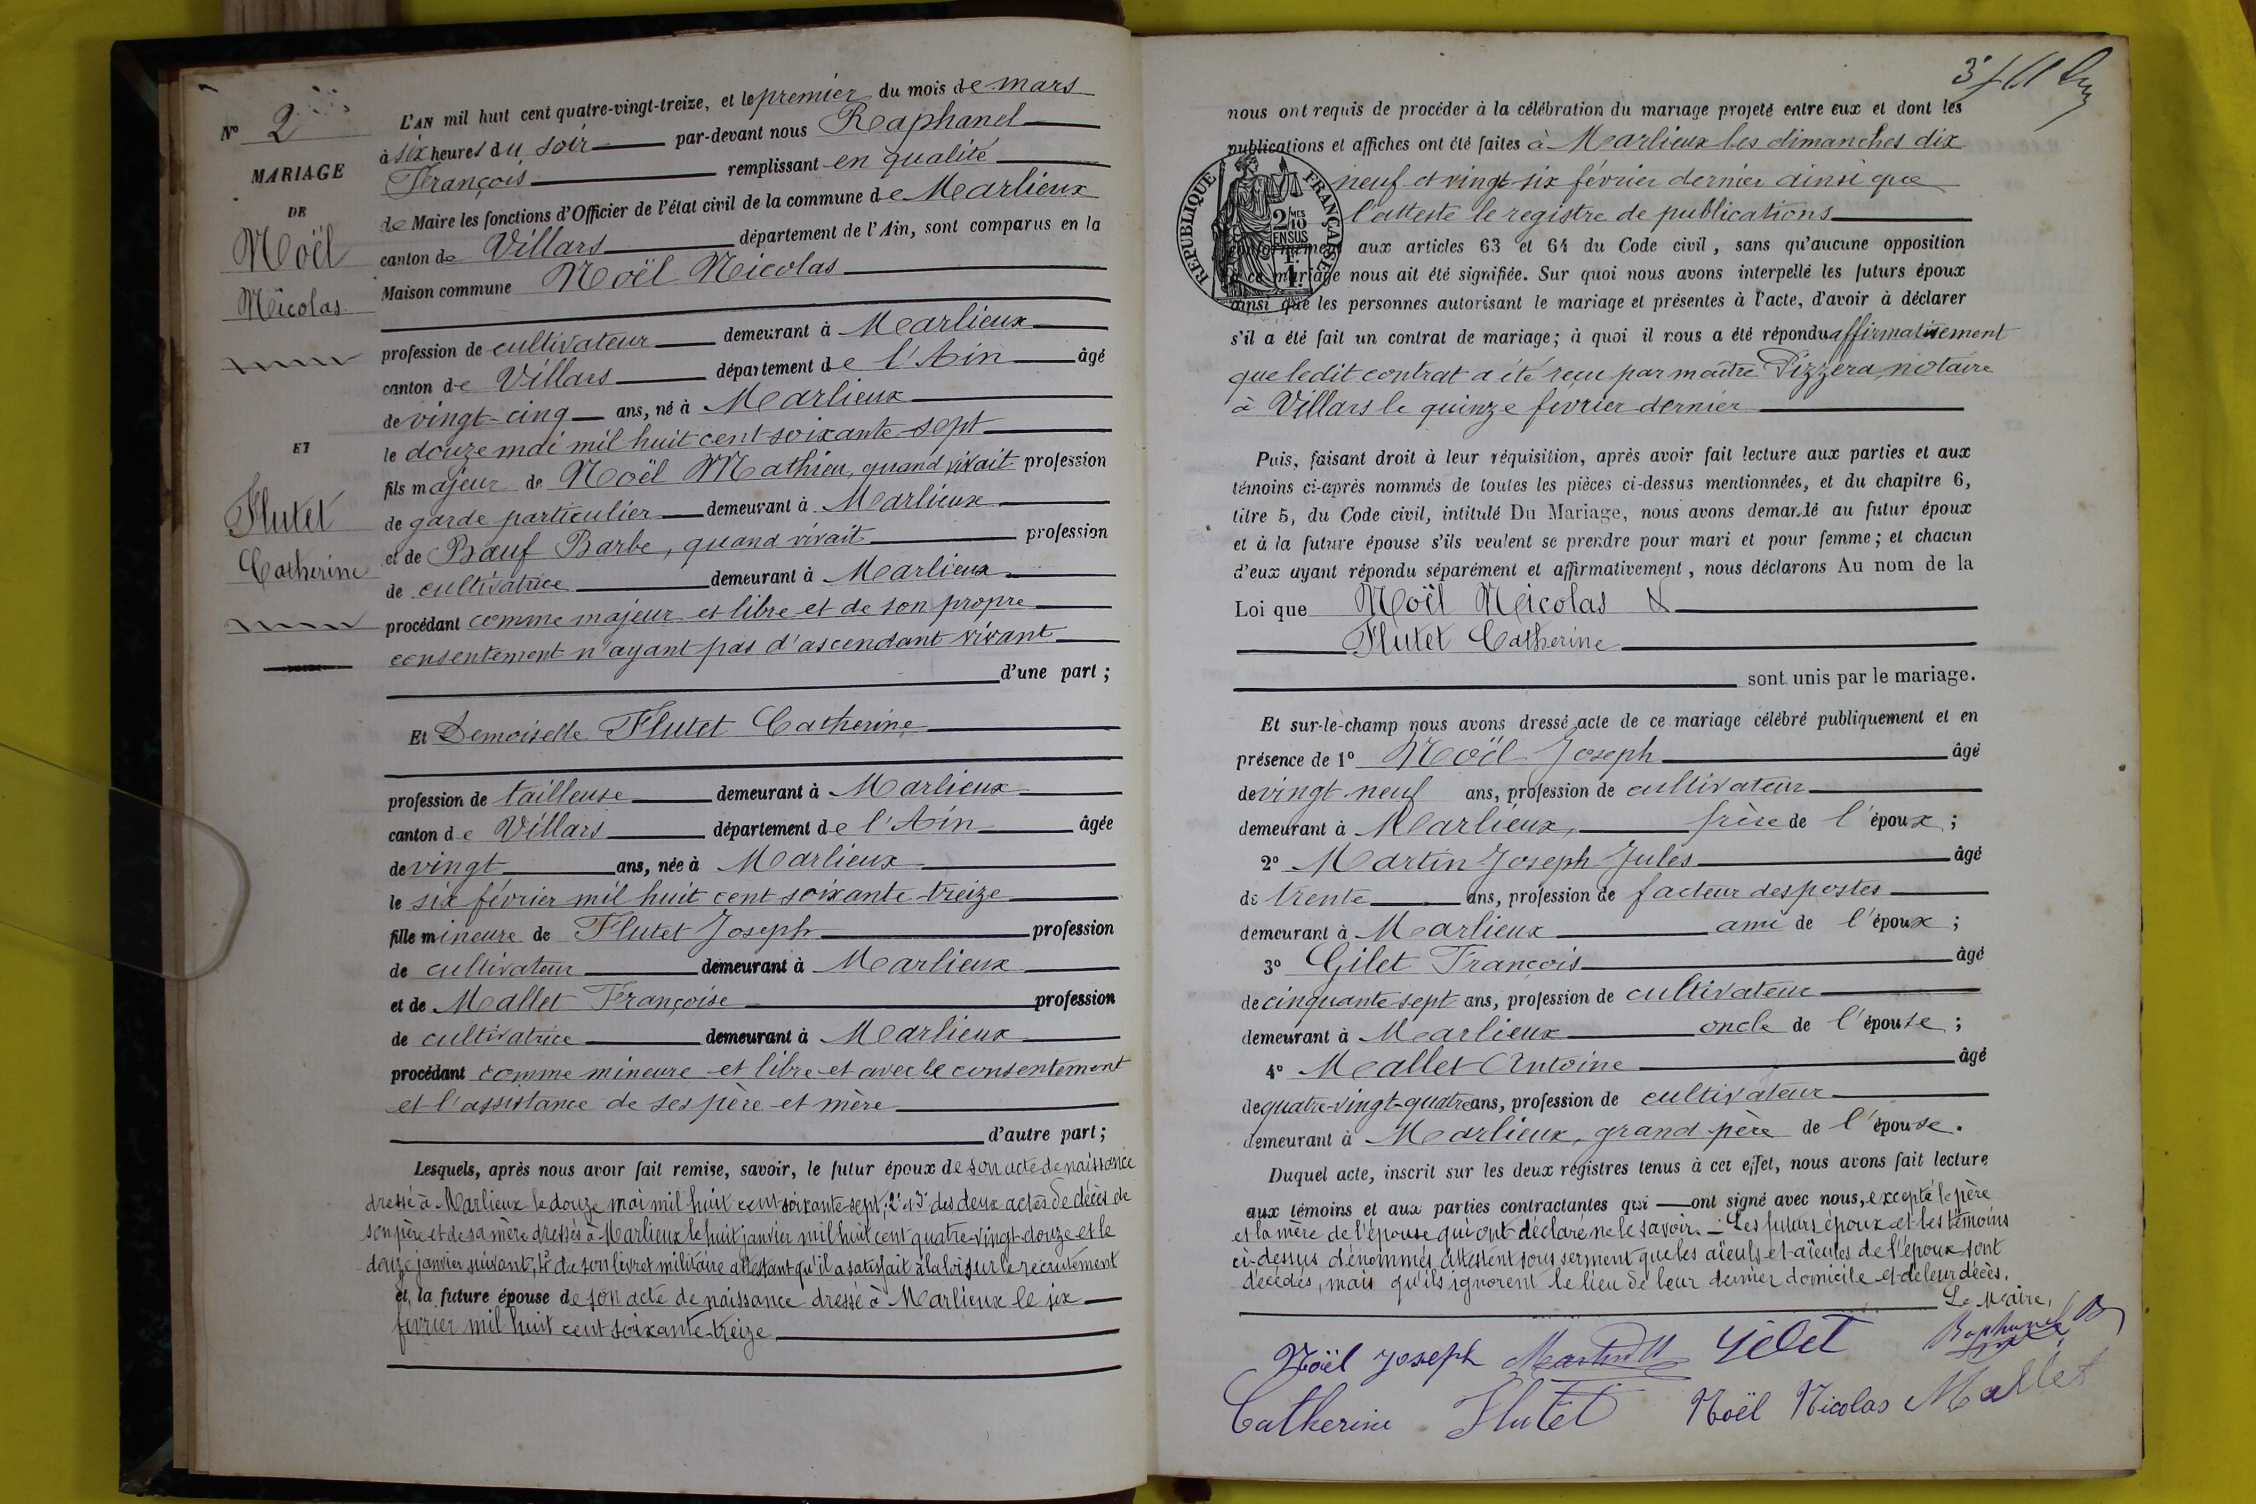 N° 2
MARIAGE
DE
Noël
Nicolas
ET
Flutet
Catherine
L'AN mil huit cent quatre-vingt-treize, et le premier du mois de mars
à six heures du soir par-devant nous Raphanel
François remplissant en qualité
de Maire les fonctions d'Officier de l'état civil de la commune de Marlieux
canton de Villars département de l'Ain, sont comparus en la
Maison commune Noël Nicolas
profession de cultivateur demeurant à Marlieux
canton de Villars département de l'Ain âgé
de vingt-cinq ans, né à Marlieux
le douze mai mil huit cent soixante-sept
fils majeur de Noël Mathieu, quand vivait profession
de garde particulier demeurant à Marlieux
et de Bœuf Barbe, quand vivait profession
de cultivatrice demeurant à Marlieux
procédant comme majeur et libre et de son propre
consentement n'ayant pas d'ascendant vivant
d'une part ;
Et Demoiselle Flutet Catherine
profession de tailleuse demeurant à Marlieux
canton de Villars département de l'Ain âgée
de vingt ans, née à Marlieux
le six février mil huit cent soixante-treize
fille mineure de Flutet Joseph profession
de cultivateur demeurant à Marlieux
et de Mallet Françoise profession
de cultivatrice demeurant à Marlieux
procédant comme mineure et libre et avec le consentement
et l'assistance de ses père et mère
d'autre part ;
Lesquels, après nous avoir fait remise, savoir, le futur époux de son acte de naissance
dressé à Marlieux le douze mai mil huit cent soixante-sept, 2° et 3° des deux actes de décès de
son père et de sa mère dressés à Marlieux le huit janvier mil huit cent quatre-vingt-douze et le
douze janvier suivant, 4° de son livret militaire attestant qu'il a satisfait à la loi sur le recrutement
et, la future épouse de son acte de naissance dressé à Marlieux le six
février mil huit cent soixante-treize
nous ont requis de procéder à la célébration du mariage projeté entre eux et dont les
publications et affiches ont été faites à Marlieux les dimanches dix
neuf et vingt-six février dernier ainsi que
l'atteste le registre de publications
RÉPUBLIQUE FRANÇAISE
2/10MES
EN SUS
1F.
conformément aux articles 63 et 64 du Code civil, sans qu'aucune opposition
à ce mariage nous ait été signifiée. Sur quoi nous avons interpellé les futurs époux
ainsi que les personnes autorisant le mariage et présentes à l'acte, d'avoir à déclarer
s'il a été fait un contrat de mariage ; à quoi il nous a été répondu affirmativement
que ledit contrat a été reçu par maître Pizzera, notaire
à Villars le quinze février dernier
Puis, faisant droit à leur réquisition, après avoir fait lecture aux parties et aux
témoins ci-après nommés de toutes les pièces ci-dessus mentionnées, et du chapitre 6,
titre 5, du Code civil, intitulé Du Mariage, nous avons demandé au futur époux
et à la future épouse s'ils veulent se prendre pour mari et pour femme ; et chacun
d'eux ayant répondu séparément et affirmativement, nous déclarons Au nom de la
Loi que Noël Nicolas &
Flutet Catherine
sont unis par le mariage.
Et sur-le-champ nous avons dressé acte de ce mariage célébré publiquement et en
présence de 1° Noël Joseph âgé
de vingt-neuf ans, profession de cultivateur
demeurant à Marlieux, frère de l'époux ;
2° Martin Joseph Jules âgé
de trente ans, profession de facteur des postes
demeurant à Marlieux ami de l'époux ;
3° Gilet François âgé
de cinquante-sept ans, profession de cultivateur
demeurant à Marlieux oncle de l'épouse ;
4° Mallet Antoine âgé
de quatre-vingt-quatre ans, profession de cultivateur
demeurant à Marlieux, grand-père de l'épouse.
Duquel acte, inscrit sur les deux registres tenus à cet effet, nous avons fait lecture
aux témoins et aux parties contractantes qui ont signé avec nous, excepté le père
et la mère de l'épouse qui ont déclaré ne le savoir. – Les futurs époux et les témoins
ci-dessus dénommés attestent sous serment que les aïeuls et aïeules de l'époux sont
décédés, mais qu'ils ignorent le lieu de leur dernier domicile et de leur décès.
Le Maire,
Noël Joseph Martin Gilet Raphanel
Catherine Flutet Noël Nicolas Mallet